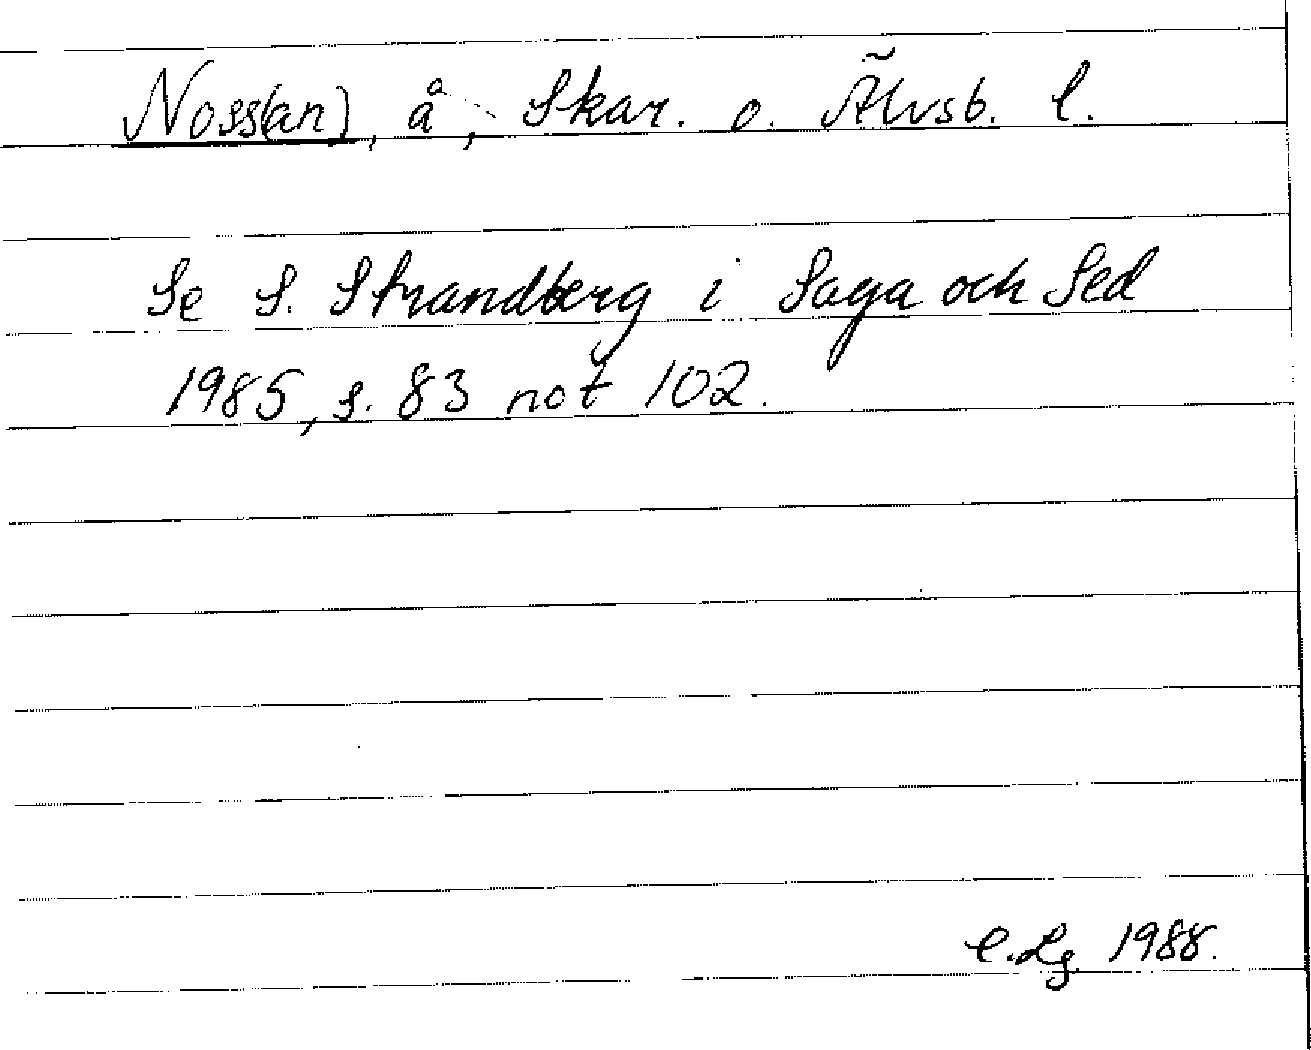 Noss(an), å, Skar. o. Älvsb. l.
Se S. Strandberg i Saga och Sed
1985, s. 83 not 102.
C.Lg. 1988.